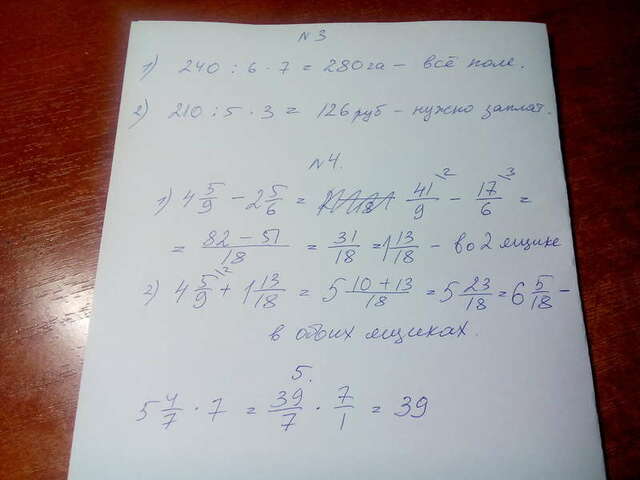 №3
1) 240 : 6 · 7 = 280 га – всё поле.
2) 210 : 5 · 3 = 126 руб – нужно заплат.
№4.
1) 4 5/9 – 2 5/6 = 41/9 \2 – 17/6 \3 =
= 82 – 51/18 = 31/18 = 1 13/18 – во 2 ящике
2) 4 5/9 \2 + 1 13/18 = 5 10 + 13/18 = 5 23/18 = 6 5/18 –
в обоих ящиках.
5.
5 4/7 · 7 = 39/7 · 7/1 = 39